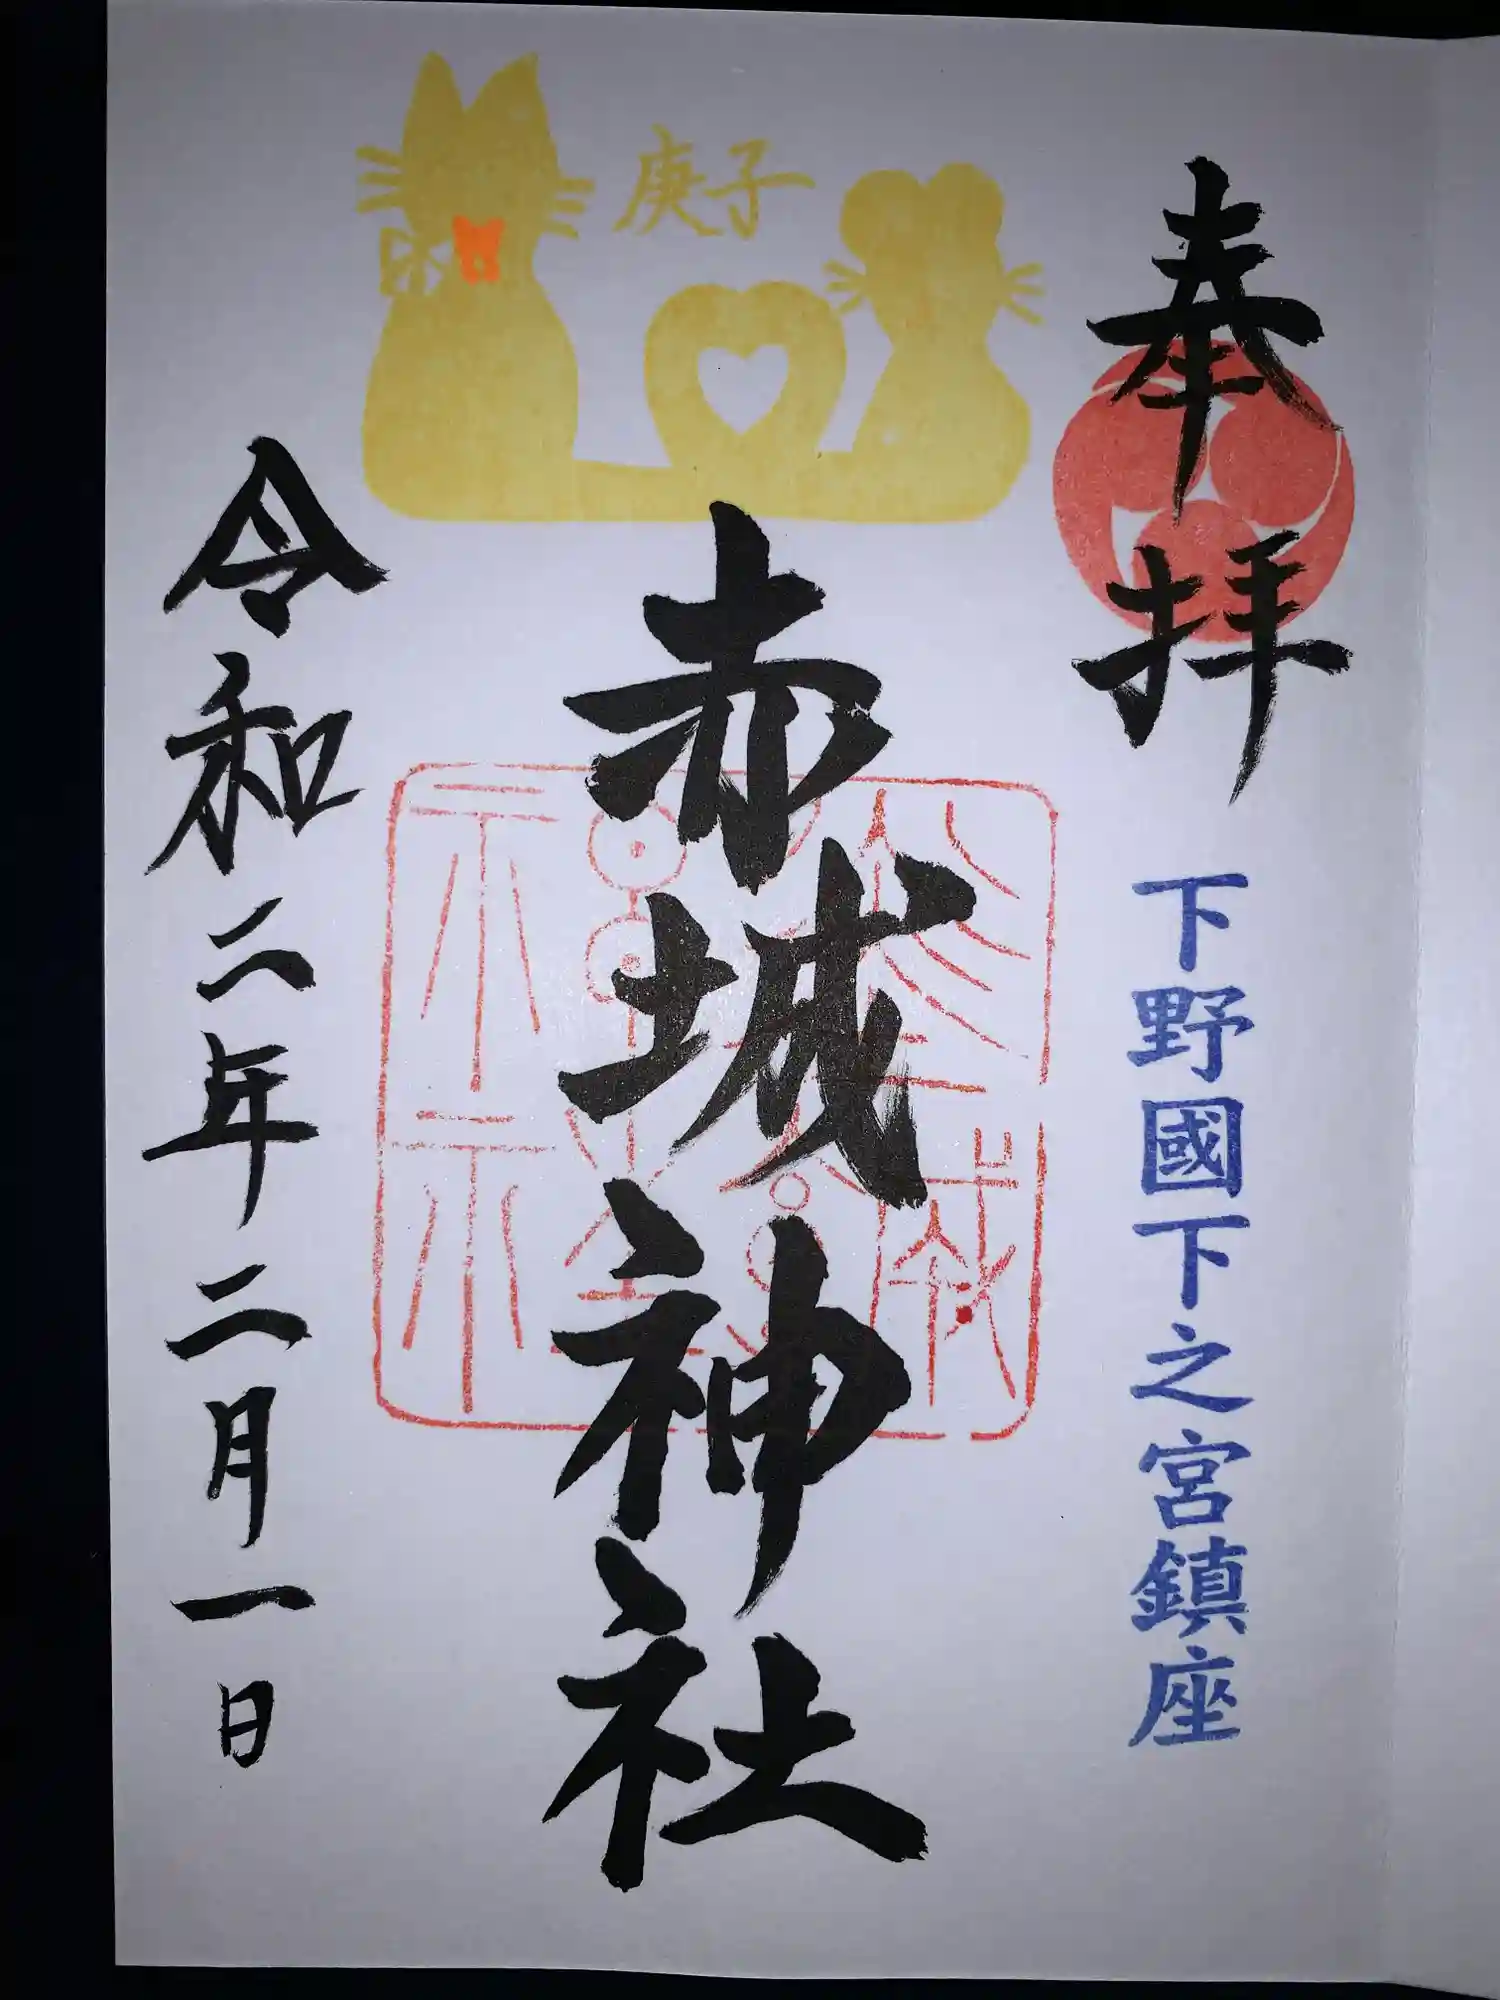 奉拝
下野國下之宮鎮座
庚子
赤城神社
令和二年二月一日